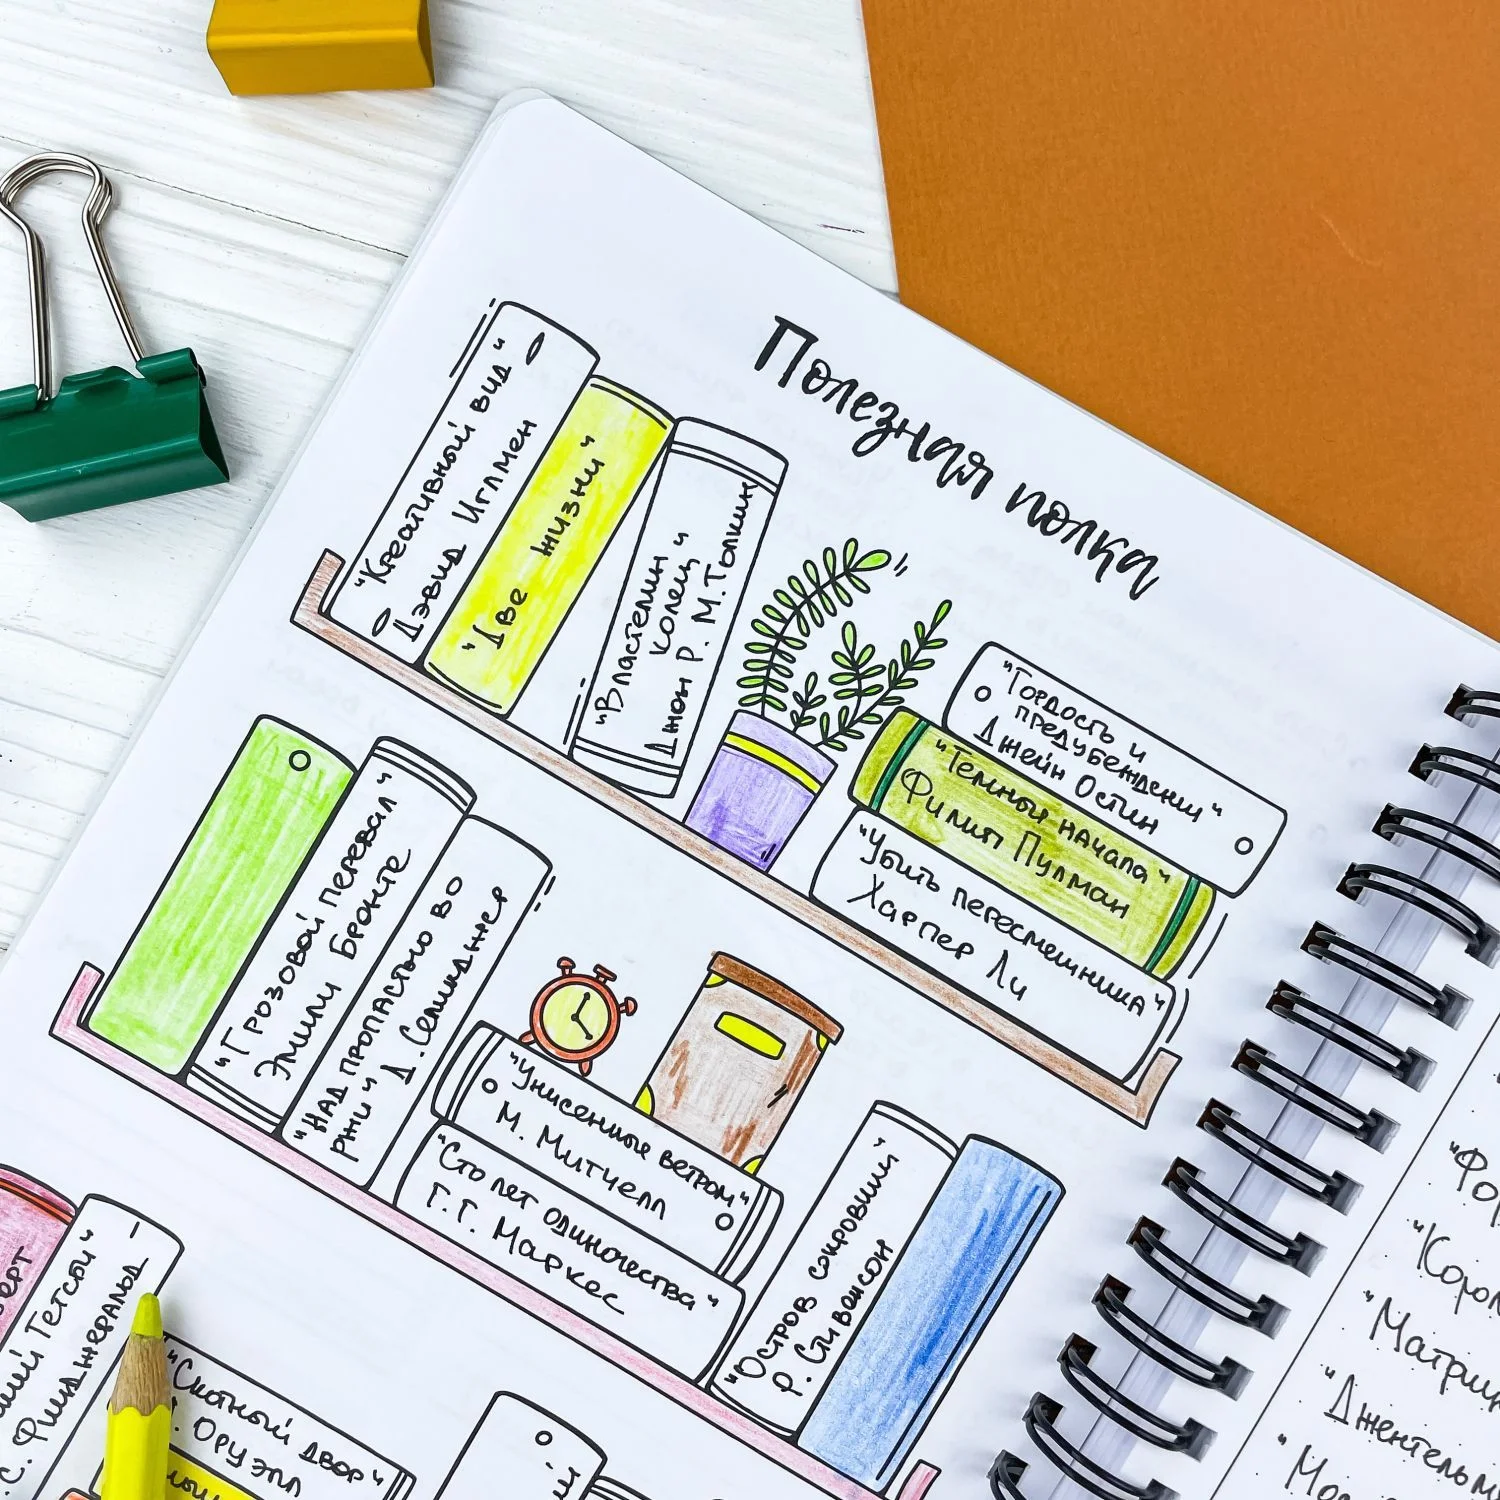 Полезная полка
"Креативный вид"
Дэвид Иглмен
"Две жизни"
"Властелин
колец"
Джон Р. М. Толкин
"Гордость и
предубеждении"
Джейн Остин
"Темные начала"
Филип Пулман
"Убить пересмешника"
Харпер Ли
"Грозовой перевал"
Эмили Бронте
"Над пропастью во
ржи" Д. Селинджер
"Унесенные ветром"
М. Митчелл
"Сто лет одиночества"
Г.Г. Маркес
"Остров сокровищ"
Р. Стивенсон
Гетсби"
С. Фицджеральд
"Скотный двор"
Оруэлл